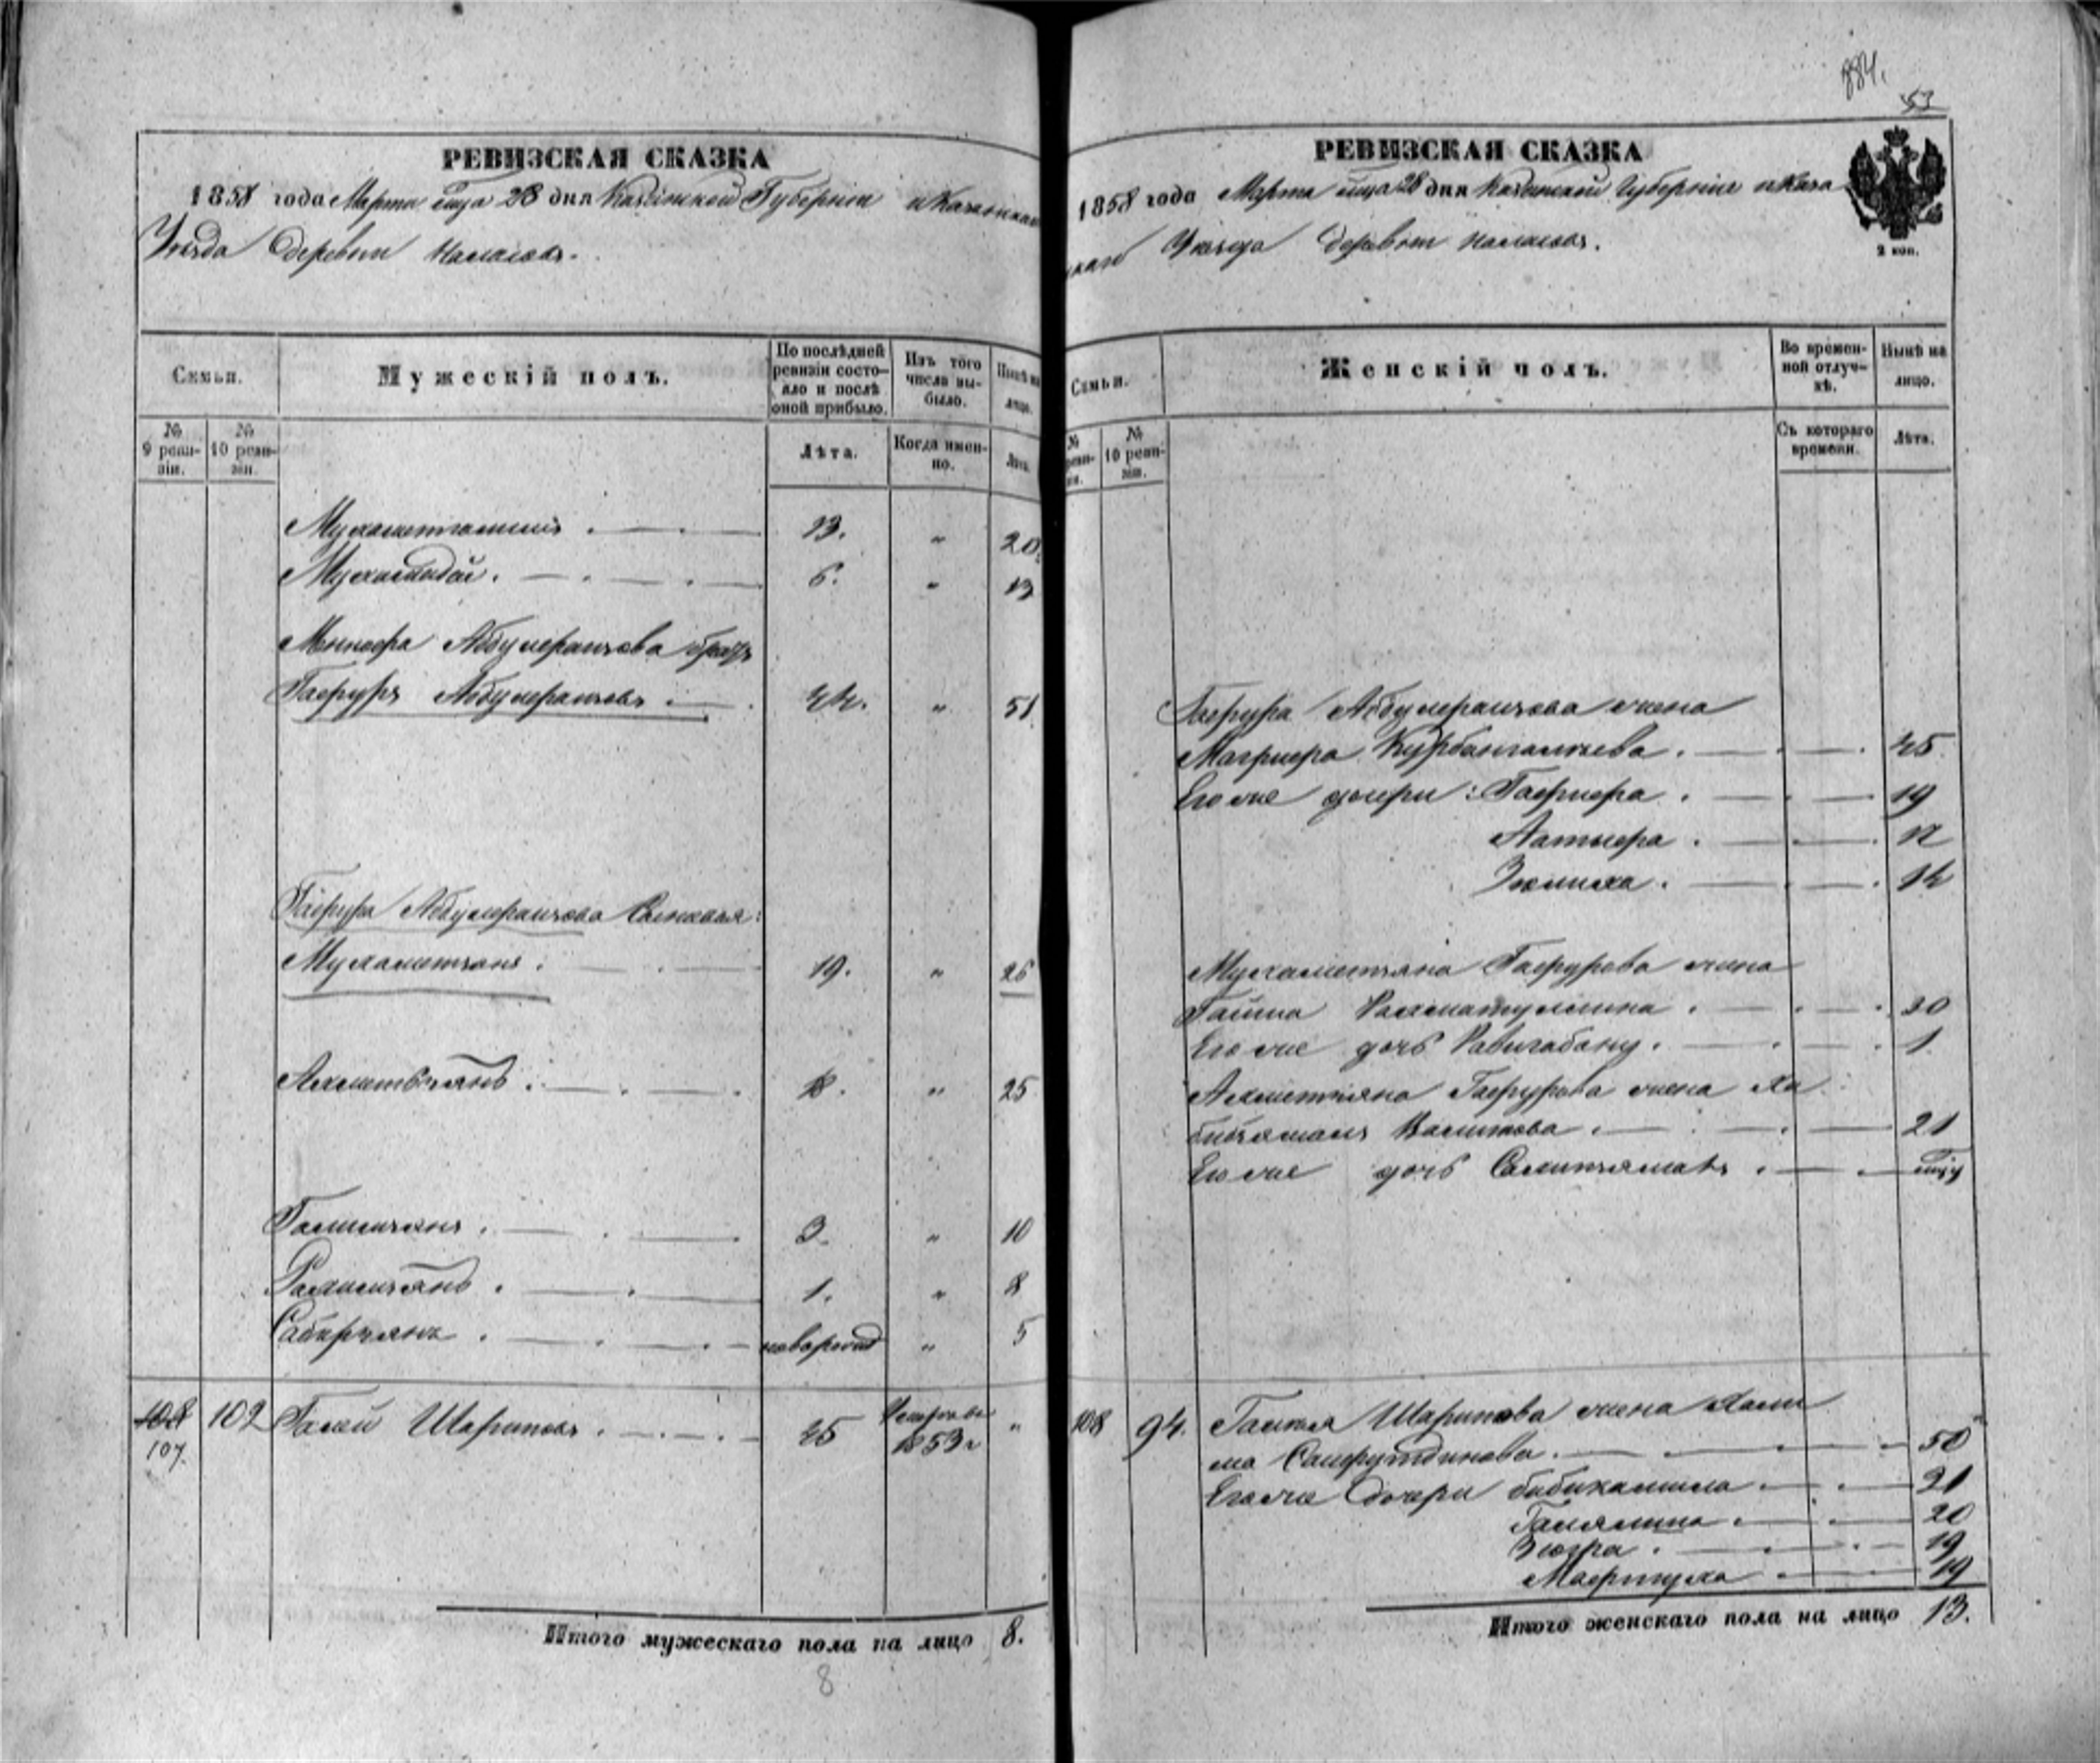 884.
53
РЕВИЗСКАЯ СКАЗКА
1858 года Марта м҃ца 28 дня Казанской Губерніи и Казанскаго
Уѣзда деревни
Семьи.
Мужескій полъ.
По послѣдней ревизіи состояло и послѣ оной прибыло.
Изъ того числа выбыло.
Нынѣ на лицо.
№ 9 ревизіи.
№ 10 ревизіи.
Лѣта.
Когда именно.
Лѣта.
13. " 20
6. " 13
Абдулефанчова братъ
Гафуръ Абдулефанчовъ 44. " 51
Гафура Абдулефанчова Сыновья:
Мухаметчанъ 19. " 26
Ахметьчанъ 18. " 25
Галимчанъ 3. " 10
1. " 8
Сабирчанъ новорожд " 5
108 102 Галей Шариповъ 45 Умеръ въ 1853 г "
107.
Итого мужескаго пола на лицо 8.
8
РЕВИЗСКАЯ СКАЗКА
1858 года Марта м҃ца 28 дня Казанской Губерніи и Каза
нскаго Уѣзда деревни
2 коп.
Семьи.
Женскій полъ.
Во временной отлучкѣ.
Нынѣ на лицо.
№ ревизіи.
№ 10 ревизіи.
Съ котораго времени.
Лѣта.
Гафура Абдулефанчова жена
Магрифа Курбангалиева 45
Его же дочери: Гафифа 19
Латифа 17
14
Мухаметчана Гафурова жена
Рахматуллина 20
Его же дочь 1
Ахметчана Гафурова жена Ха
бибчамалъ Валитова 21
Его же дочь
108 94. Галея Шарипова жена Хали
ма Сайфутдинова 50
Его же дочери Бибикамила 21
20
Зюгра 19
Мафтуха 19
Итого женскаго пола на лицо 13.